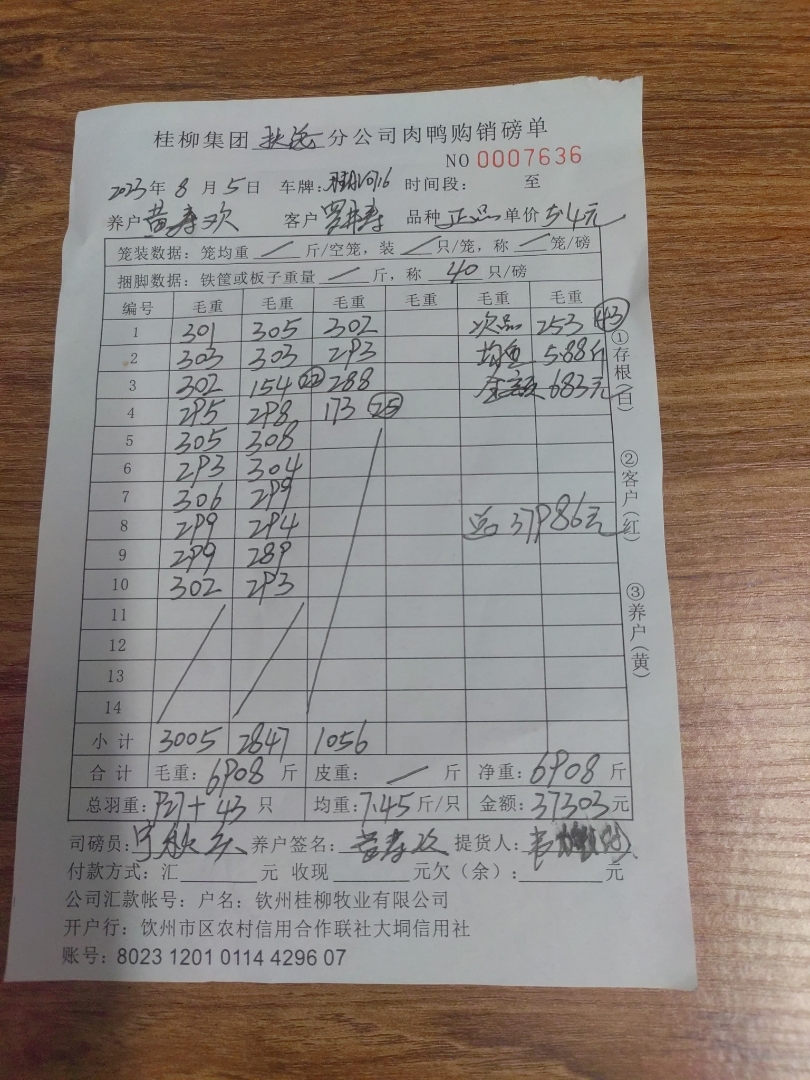 桂柳集团 分公司肉鸭购销磅单
NO 0007636
2023年 8 月 5 日 车牌: 时间段: 至
养户 黄寿欢 客户 品种 正品 单价 5.4元
笼装数据：笼均重 / 斤/空笼，装 / 只/笼，称 / 笼/磅
捆脚数据：铁筐或板子重量 / 斤，称 40 只/磅
编号 毛重 毛重 毛重 毛重 毛重 毛重
1 301 305 302 次品 253 (43)
2 303 303 293 均重 5.88斤
3 302 154 (22) 288 金额 683元
4 295 298 173 (25)
5 305 308
6 293 304
7 306 299
8 299 294 37986元
9 299 289
10 302 293
11
12
13
14
小计 3005 2847 1056
合计 毛重: 6908 斤 皮重: / 斤 净重: 6908 斤
总羽重: 927+43 只 均重: 7.45 斤/只 金额: 37303 元
司磅员: 养户签名: 黄寿欢 提货人:
付款方式: 汇 元 收现 元欠（余）: 元
公司汇款帐号：户名：钦州桂柳牧业有限公司
开户行：钦州市区农村信用合作联社大垌信用社
账号：8023 1201 0114 4296 07
①存根（白）
②客户（红）
③养户（黄）